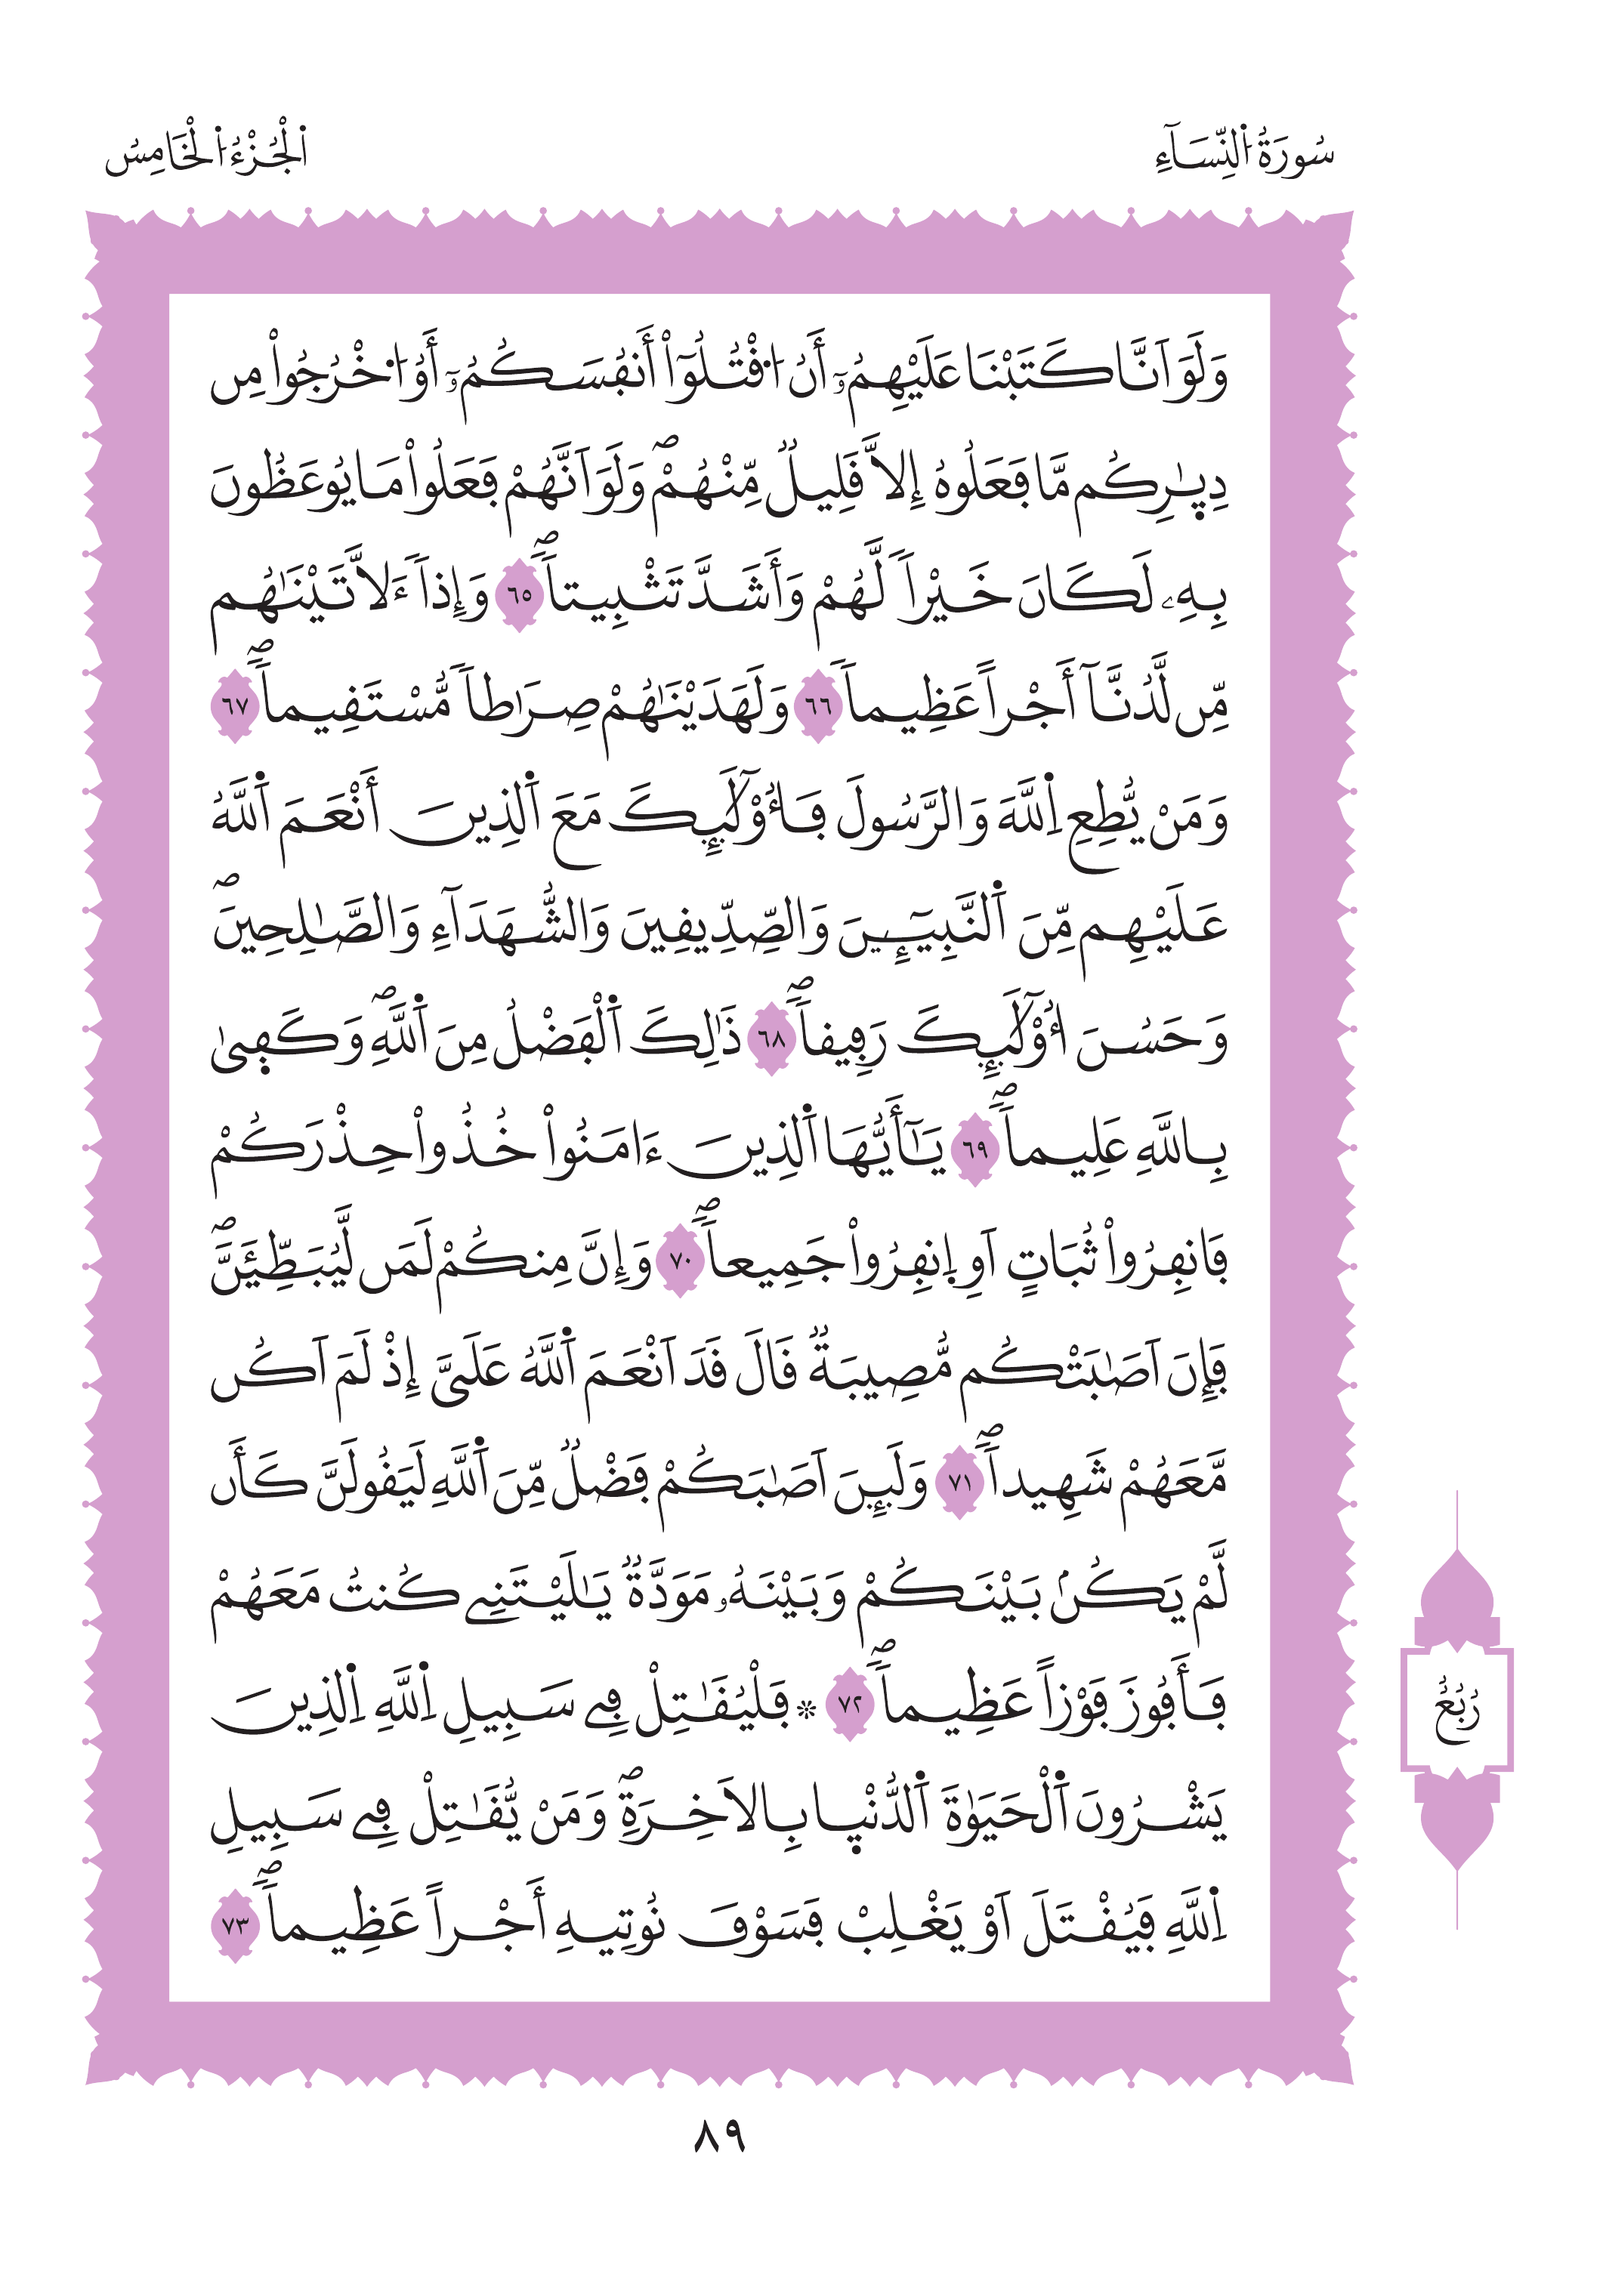 سُورَةُ النِّسَآءِ
الْجُزْءُ الْخَامِسُ
وَلَوَ اَنَّا كَتَبْنَا عَلَيْهِمُۥٓ أَنُ اُقْتُلُوٓاْ أَنفُسَكُمُۥٓ أَوُ اُخْرُجُواْ مِن
دِيٰ۪رِكُم مَّا فَعَلُوهُ إِلاَّ قَلِيلٌ مِّنْهُمْۖ وَلَوَ اَنَّهُمْ فَعَلُواْ مَا يُوعَظُونَ
بِهِۦ لَكَانَ خَيْراً لَّهُمْ وَأَشَدَّ تَثْبِيتاًۖ ٦٥ وَإِذاً ءَلاَّتَيْنَٰهُم
مِّن لَّدُنَّآ أَجْراً عَظِيماً ٦٦ وَلَهَدَيْنَٰهُمْ صِرَٰطاً مُّسْتَقِيماًۖ ٦٧
وَمَنْ يُّطِعِ اِللَّهَ وَالرَّسُولَ فَأُوْلَٰٓئِكَ مَعَ اَلذِينَ أَنْعَمَ اَللَّهُ
عَلَيْهِم مِّنَ اَلنَّبِيٓـِٕينَ وَالصِّدِّيقِينَ وَالشُّهَدَآءِ وَالصَّٰلِحِينَۖ
وَحَسُنَ أُوْلَٰٓئِكَ رَفِيقاًۖ ٦٨ ذَٰلِكَ اَلْفَضْلُ مِنَ اَللَّهِۖ وَكَف۪يٰ
بِاللَّهِ عَلِيماًۖ ٦٩ يَٰٓأَيُّهَا اَلذِينَ ءَامَنُواْ خُذُواْ حِذْرَكُمْ
فَانفِرُواْ ثُبَاتٍ اَوِ اِنفِرُواْ جَمِيعاًۖ ٧٠ وَإِنَّ مِنكُمْ لَمَن لَّيُبَطِّئَنَّۖ
فَإِنَ اَصَٰبَتْكُم مُّصِيبَةٌ قَالَ قَدَ اَنْعَمَ اَللَّهُ عَلَيَّ إِذْ لَمَ اَكُن
مَّعَهُمْ شَهِيداًۖ ٧١ وَلَئِنَ اَصَٰبَكُمْ فَضْلٌ مِّنَ اَللَّهِ لَيَقُولَنَّ كَأَن
لَّمْ يَكُنۢ بَيْنَكُمْ وَبَيْنَهُۥ مَوَدَّةٌ يَٰلَيْتَنِے كُنتُ مَعَهُمْ
فَأَفُوزَ فَوْزاً عَظِيماًۖ ٧٢ * فَلْيُقَٰتِلْ فِے سَبِيلِ اِللَّهِ اِلذِينَ
يَشْرُونَ اَلْحَيَوٰةَ اَلدُّنْي۪ا بِالاَخِرَةِۖ وَمَنْ يُّقَٰتِلْ فِے سَبِيلِ
اِللَّهِ فَيُقْتَلَ اَوْ يَغْلِبْ فَسَوْفَ نُوتِيهِ أَجْراً عَظِيماًۖ ٧٣
رُبُعُ
٨٩